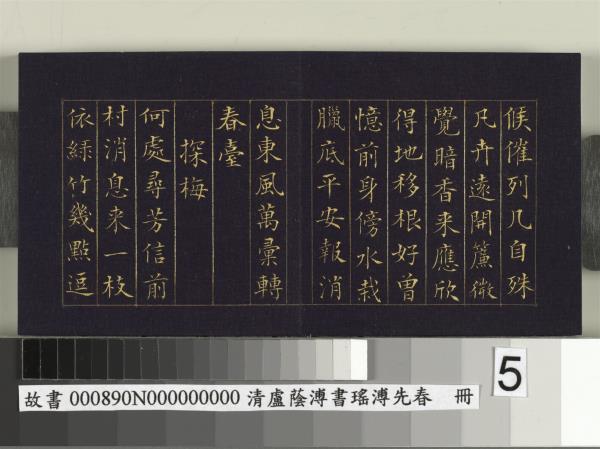 候催列几自殊
凡卉遠開簾微
覺暗香来應欣
得地移根好曾
憶前身傍水栽
臘底平安報消
息東風萬彙轉
春臺
探梅
何處尋芳信前
村消息来一枝
依緑竹幾點逗
5
故書 000890N000000000 清盧蔭溥書瑤溥先春 冊